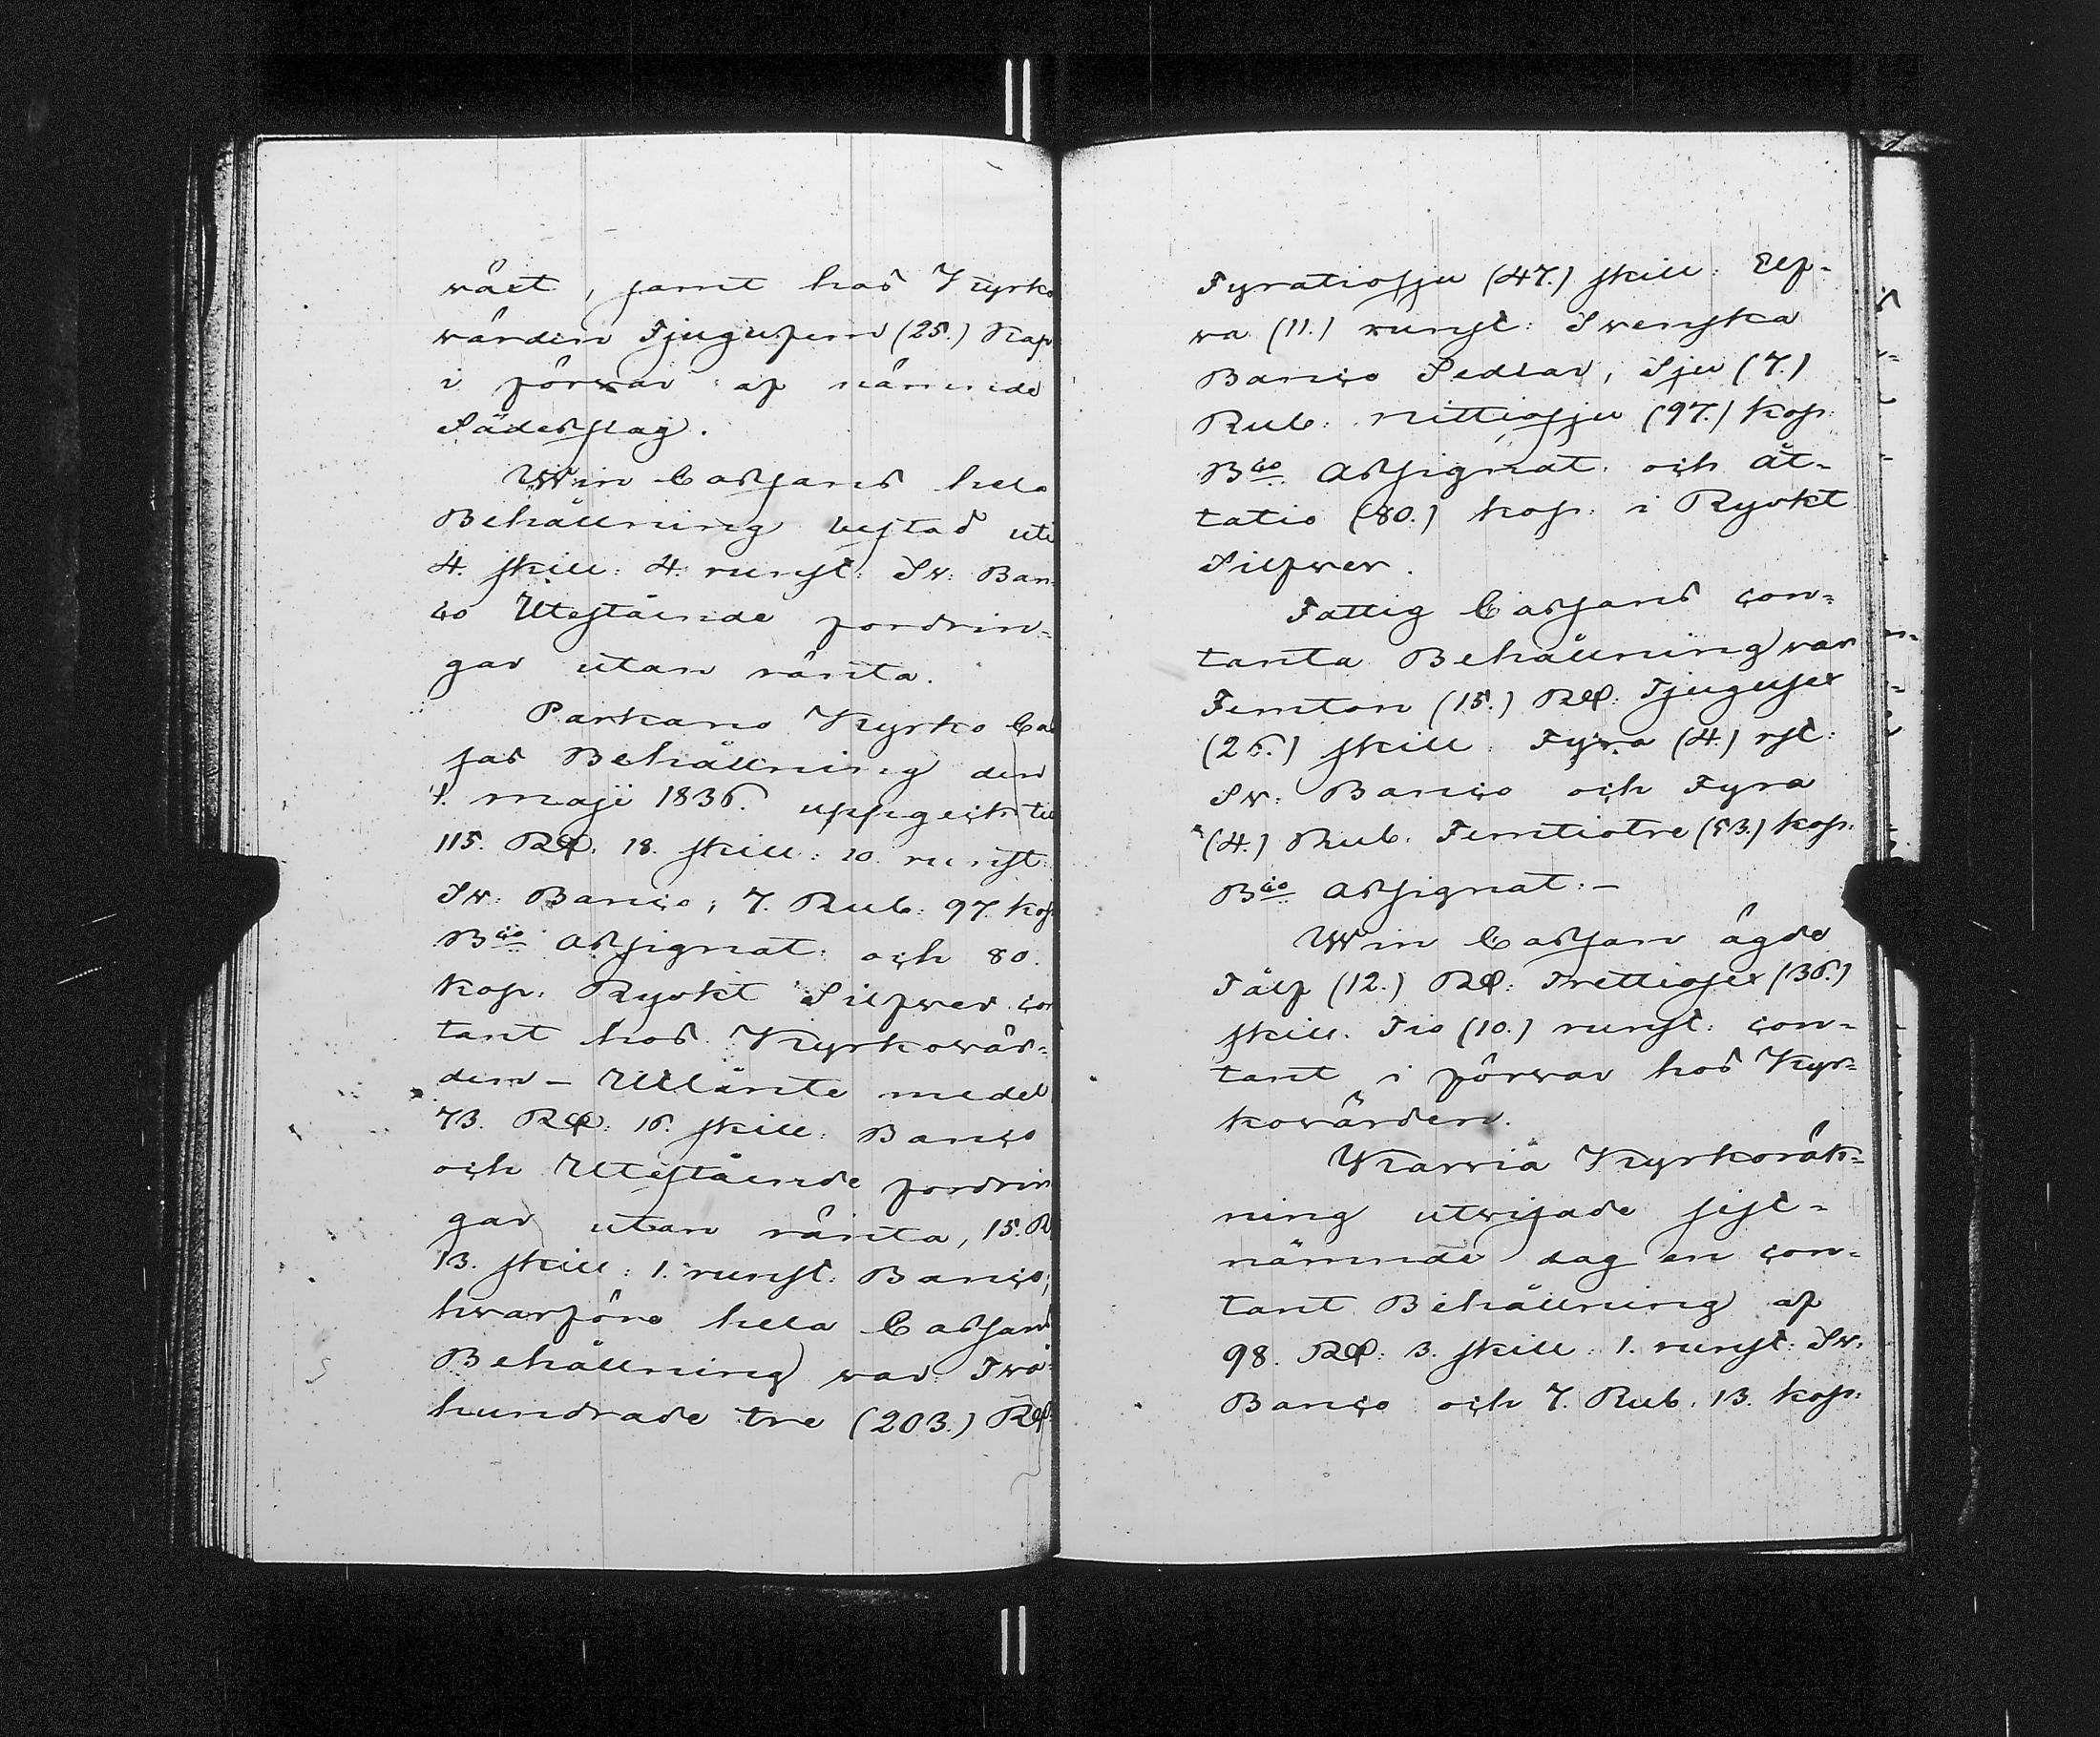 växt, samt hos Kyrko
värden Tjugufem (25.) Kap
i förvar af nämnde
Sädesslag.
Win Cassans hela
Behållning bestod uti
4. skill: 4. runst: Sv: Ban-
co Utestående fordrin-
gar utan ränta.
Parkano Kyrko Cas
sas Behållning den
1. maji 1836. uppgick till
115. Rd. 18. skill: 10. runst:
Sv: Banco; 7. Rub: 97. kop
Bco Assignat: och 80.
kop: Ryskt Silfver con
tant hos Kyrkovär-
den – Utlånte medel
73. Rd: 16. skill: Banco
och Utestående fordrin
gar utan ränta, 15. R
13. skill: 1. runst: Banco;
hvarföre hela Cassans
Behållning var Två-
hundrade tre (203.) Rd:
Fyratiosju (47.) skill: Elf-
va (11.) runst: Svenska
Banco Sedlar, Sju (7.)
Rub: nittiosju (97.) kop:
Bco Assignat: och åt-
tatio (80.) kop: i Ryskt
Silfver.
Fattig Cassans con-
tanta Behållning var
Femton (15.) Rd: Tjugusex
(26.) skill: Fyra (4.) rst:
Sv: Banco och Fyra
(4.) Rub. Femtiotre (53.) kop:
Bco Assignat: –
Win Cassan ägde
Tålf (12.) Rd: Trettiosex (36.)
skill. Tio (10.) runst: con-
tant i förvar hos Kyr-
kovärden.
Karvia Kyrkoräk-
ning utvisade sist-
nämnde dag en con-
tant Behållning af
98. Rd: 3. skill: 1. runst: Sv:
Banco och 7. Rub. 13. kop: